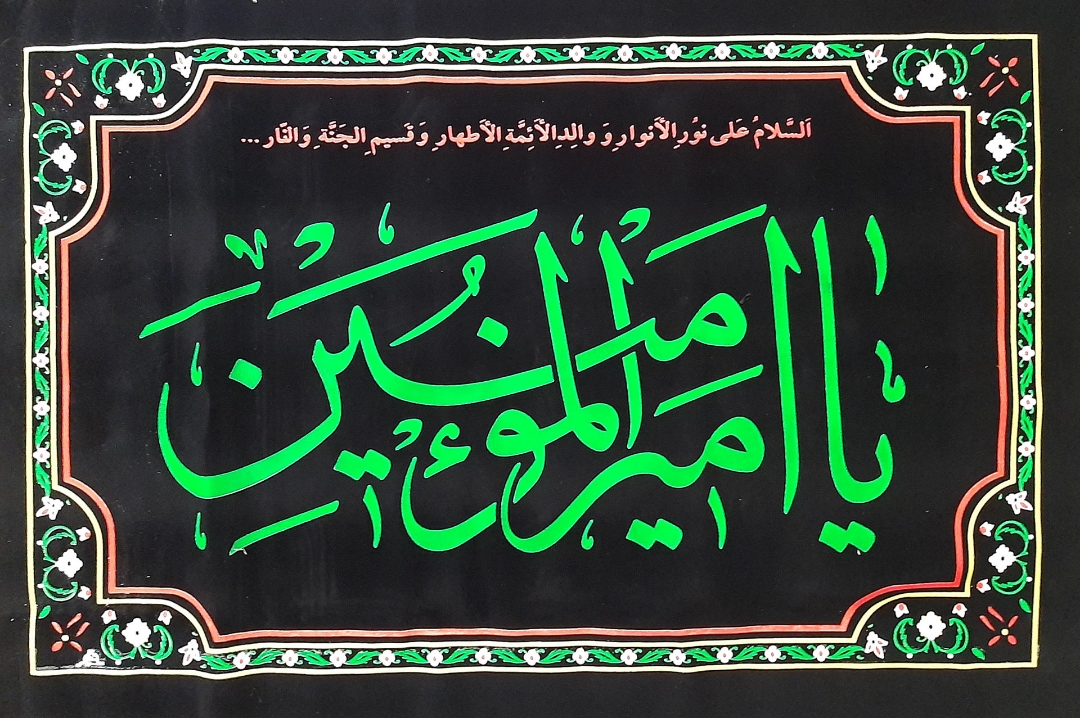 اَلسَّلامُ عَلی نوُرِ الاَنوارِ وَ والِدِ الاَئِمَّةِ الاَطهارِ وَ قَسیمِ الجَنَّةِ وَ النّار ...
یا امیرَ المؤمنینَ